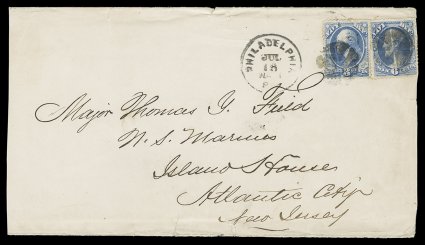 PHILADELPHIA
JUL
18
Major Thomas Y. Field
U. S. Marines
Island House
Atlantic City
New Jersey